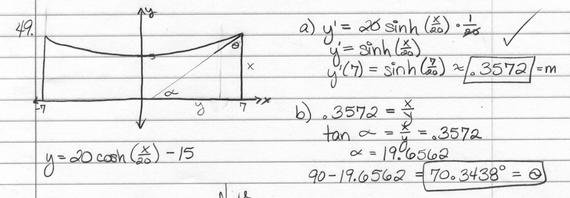 49.
y
5
θ
x
α
-7
y
7
x
y = 20 cosh (x/20) - 15
a) y' = 20 sinh (x/20) · 1/20
y' = sinh (x/20)
y'(7) = sinh (7/20) ≈ .3572 = m
b) .3572 = x/y
tan α = x/y = .3572
α = 19.6562
90 - 19.6562 = 70.3438° = θ